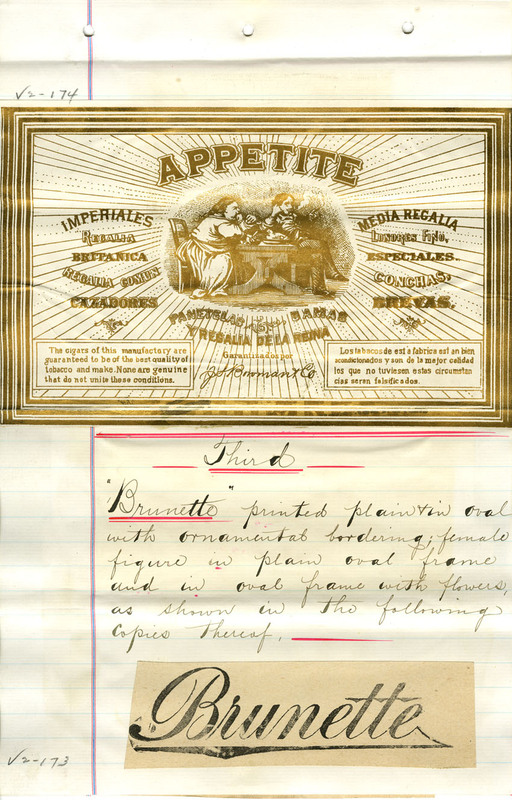 V2-174
APPETITE
IMPERIALES
REGALIA
BRITANICA
REGALIA COMUN
CAZADORES
MEDIA REGALIA
LONDRES FINO,
ESPECIALES.
CONCHAS,
BREVAS.
PANETELAS DAMAS
Y REGALIA DE LA REINA
Garantinados por
The cigars of this manufactory are
guaranteed to be of the best quality of
tobacco and make. None are genuine
that do not unite those conditions.
Los tabacos de está fabrica estan bien
acondicionados y son de la mejor calidad
los que no tuviesen estas circunstan
cias seran falsificados.
Third
"Brunette" printed plain & in oval
with ornamental bordering; female
figure in plain oval frame
and in oval frame with flowers,
as shown in the following
copies thereof,
Brunette
V2-173